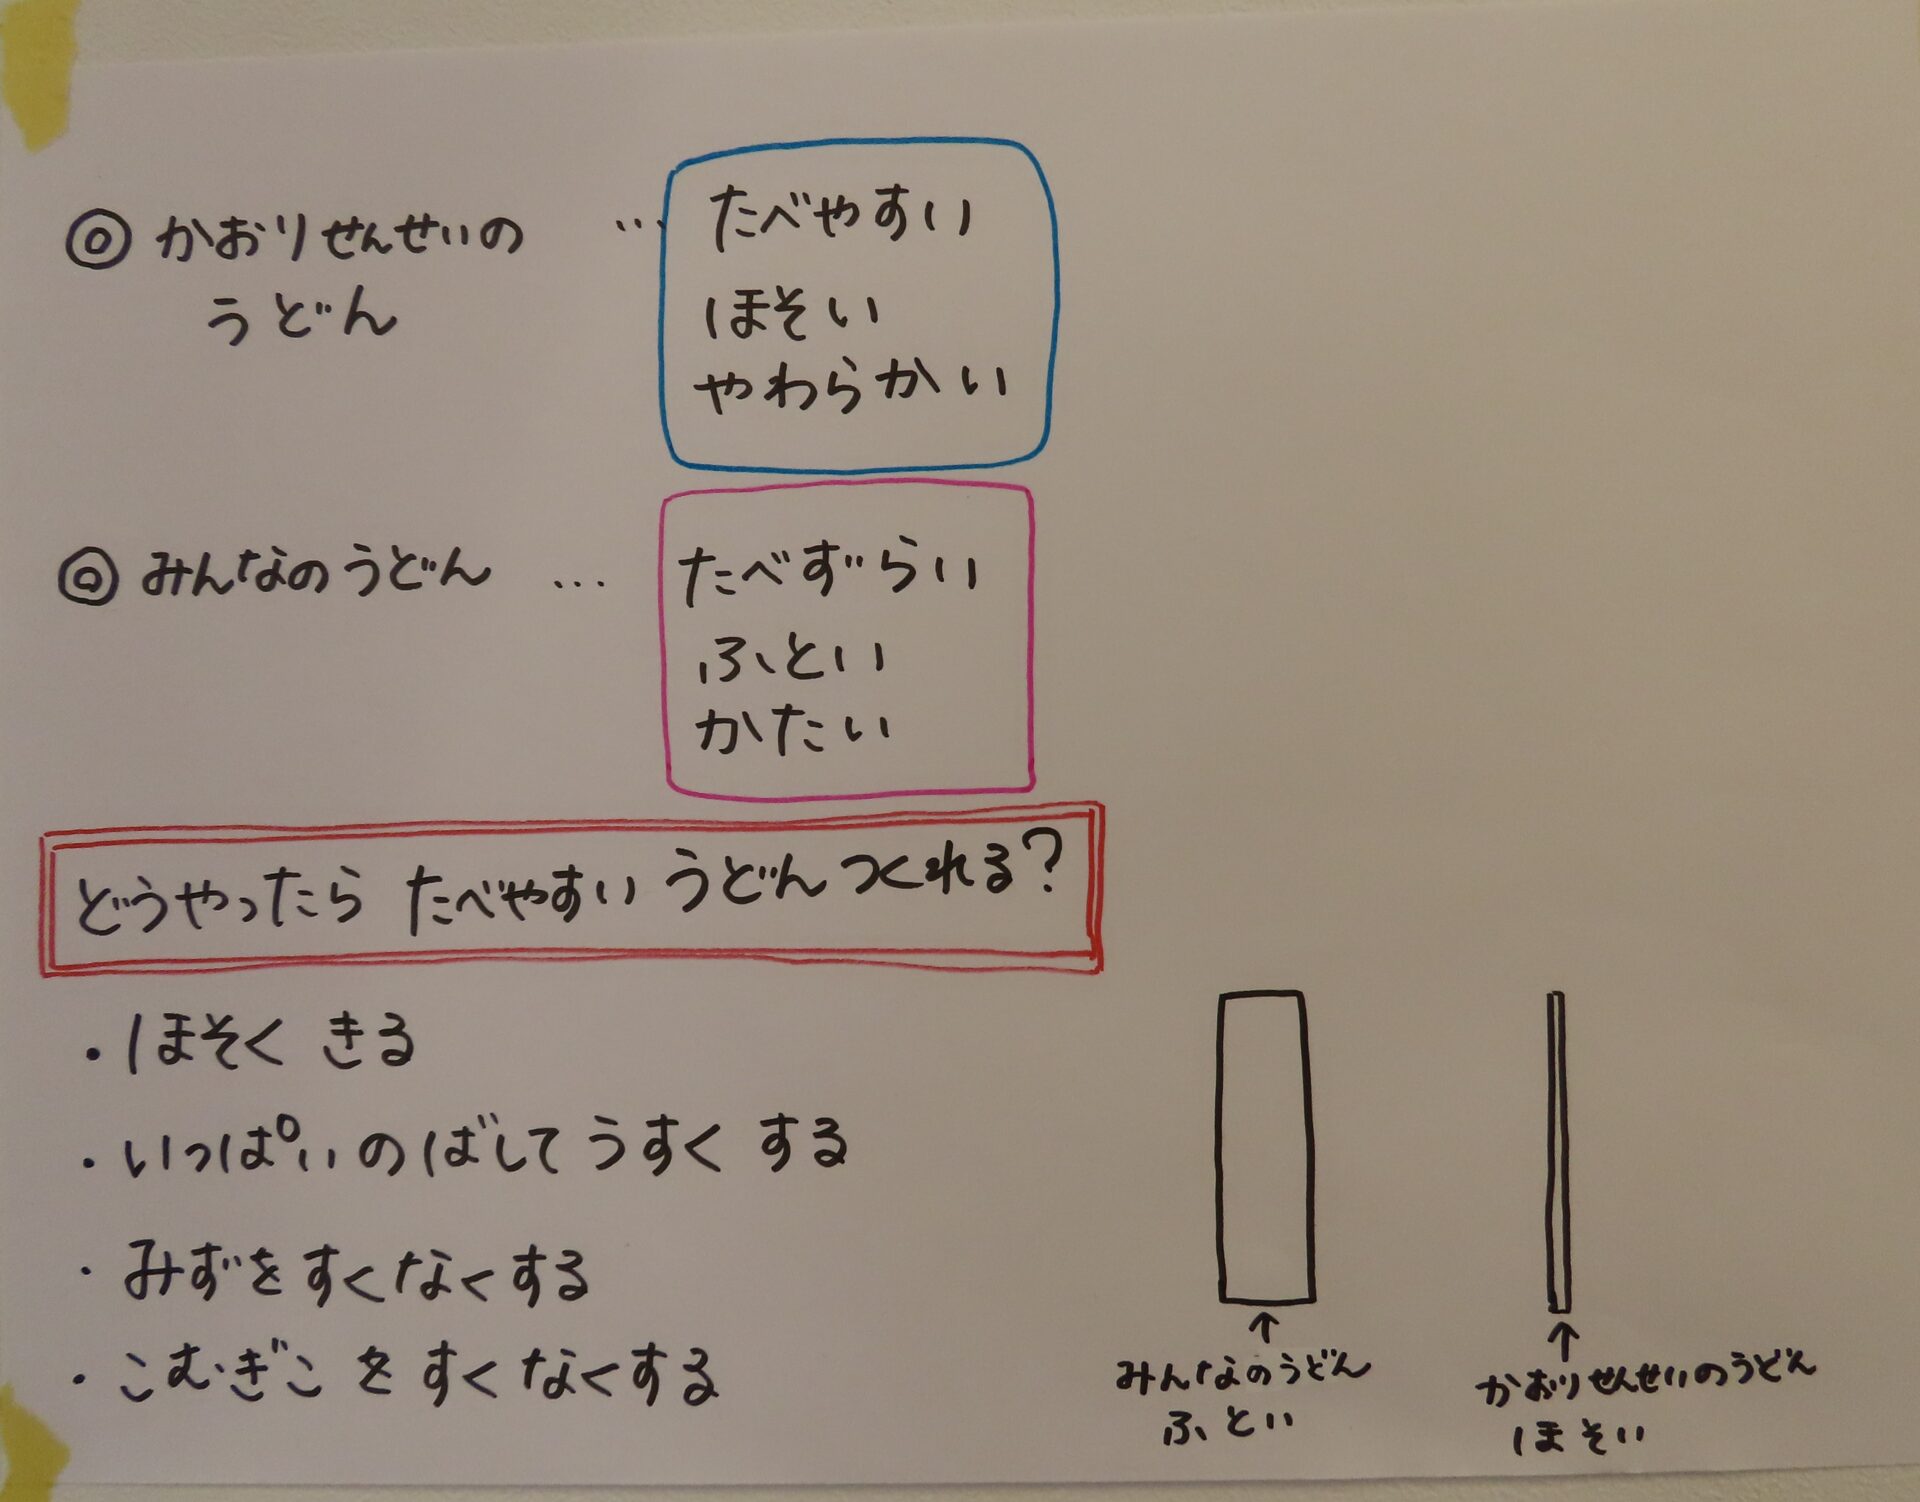 ◎ かおりせんせいの
うどん
… たべやすい
ほそい
やわらかい
◎ みんなのうどん … たべずらい
ふとい
かたい
どうやったら たべやすい うどん つくれる?
・ほそく きる
・いっぱい のばして うすく する
・みずを すくなくする
・こむぎこ を すくなくする
↑
みんなのうどん
ふとい
↑
かおりせんせいのうどん
ほそい